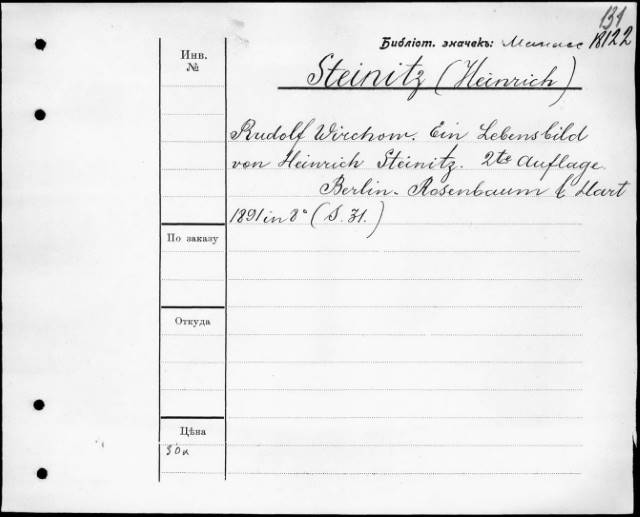 131
Библіот. значекъ: 18122
Инв.
№
Steinitz (Heinrich)
Rudolf Wirchow. Ein Lebensbild
von Heinrich Steinitz. 2te Auflage.
Berlin. Rosenbaum & Hart
1891 in 8° (S. 31.)
По заказу
Откуда
Цѣна
50к